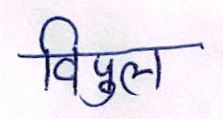 विपुल